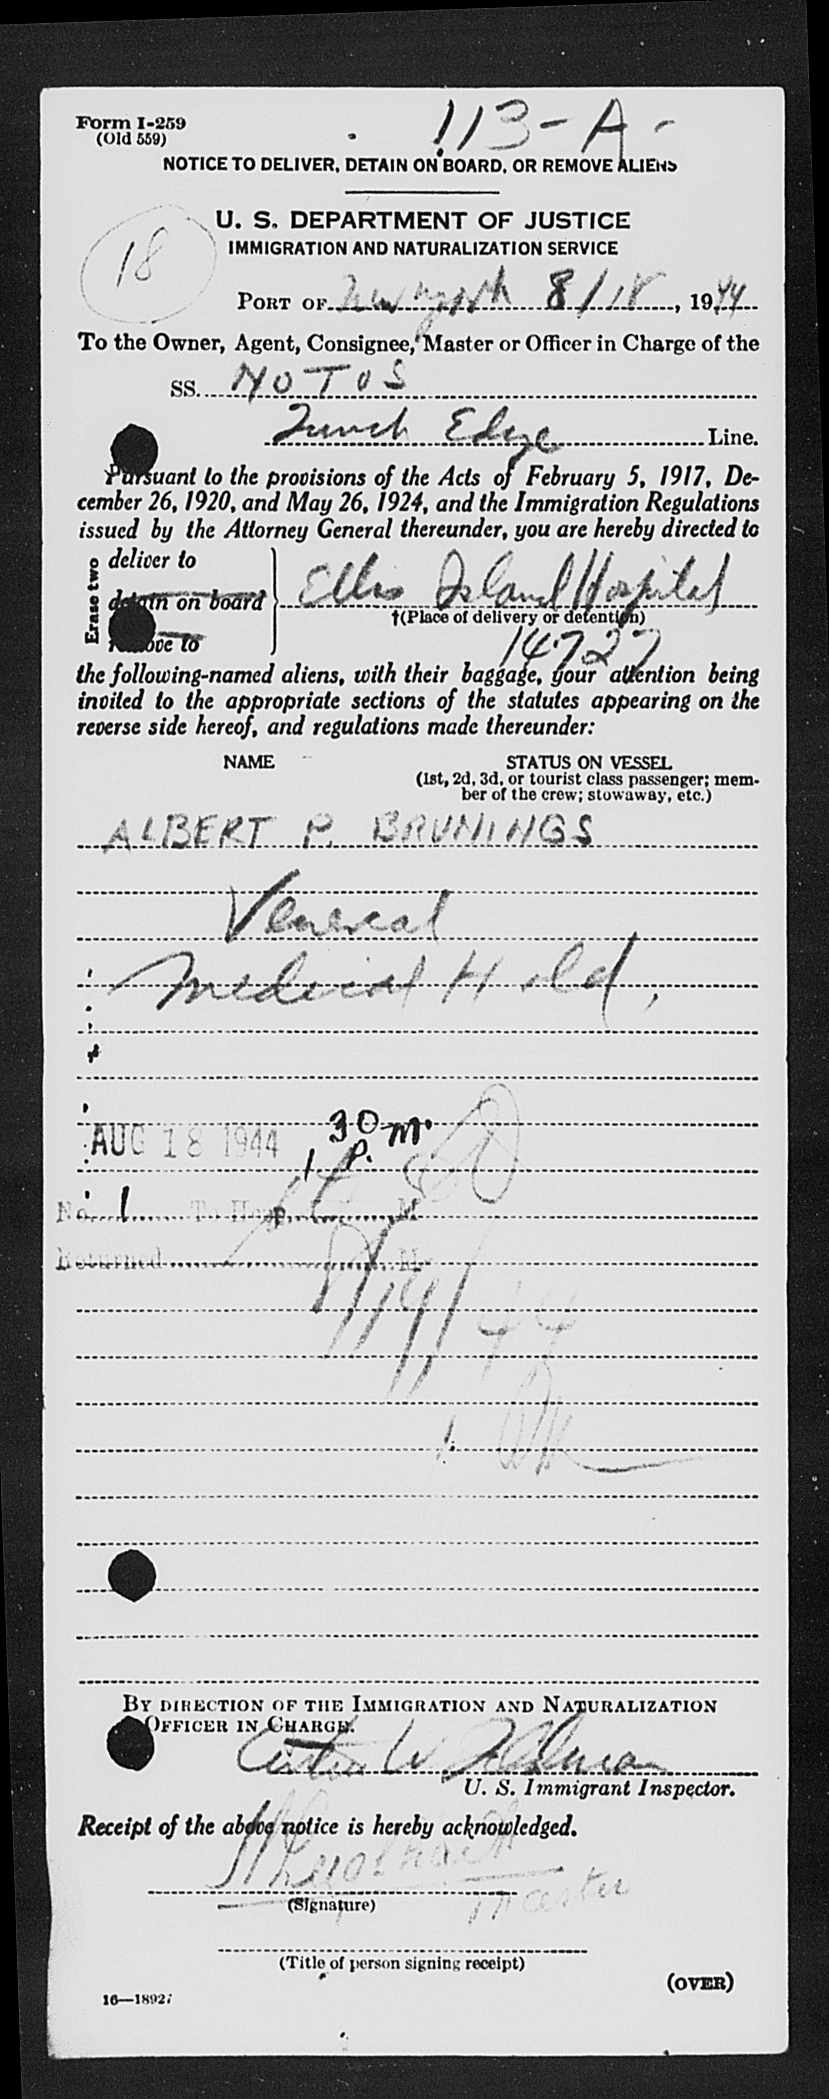 Form I-259
(Old 559)
113-A-
NOTICE TO DELIVER, DETAIN ON BOARD, OR REMOVE ALIENS
U. S. DEPARTMENT OF JUSTICE
IMMIGRATION AND NATURALIZATION SERVICE
18
PORT OF New York 8/18, 1944
To the Owner, Agent, Consignee, Master or Officer in Charge of the
SS. NOTOS
Line.
Pursuant to the provisions of the Acts of February 5, 1917, De-
cember 26, 1920, and May 26, 1924, and the Immigration Regulations
issued by the Attorney General thereunder, you are hereby directed to
Erase two
deliver to
detain on board
remove to
Ellis Island Hospital
†(Place of delivery or detention)
14727
the following-named aliens, with their baggage, your attention being
invited to the appropriate sections of the statutes appearing on the
reverse side hereof, and regulations made thereunder:
NAME STATUS ON VESSEL
(1st, 2d, 3d, or tourist class passenger; mem-
ber of the crew; stowaway, etc.)
ALBERT P. BRUNINGS
Venereal
Medical Hold.
AUG 18 1944
1 30 P. M.
No. 1 To Hosp. M
Returned M
8/19/44
BY DIRECTION OF THE IMMIGRATION AND NATURALIZATION
OFFICER IN CHARGE.
U. S. Immigrant Inspector.
Receipt of the above notice is hereby acknowledged.
Master
(Signature)
(Title of person signing receipt)
(OVER)
16—18927